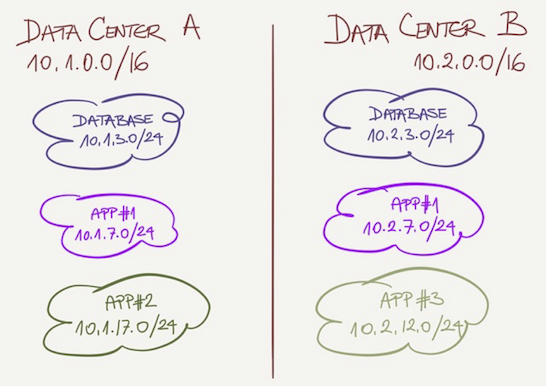 DATA CENTER A
10.1.0.0/16
DATABASE
10.1.3.0/24
APP#1
10.1.7.0/24
APP#2
10.1.17.0/24
DATA CENTER B
10.2.0.0/16
DATABASE
10.2.3.0/24
APP#1
10.2.7.0/24
APP#3
10.2.12.0/24